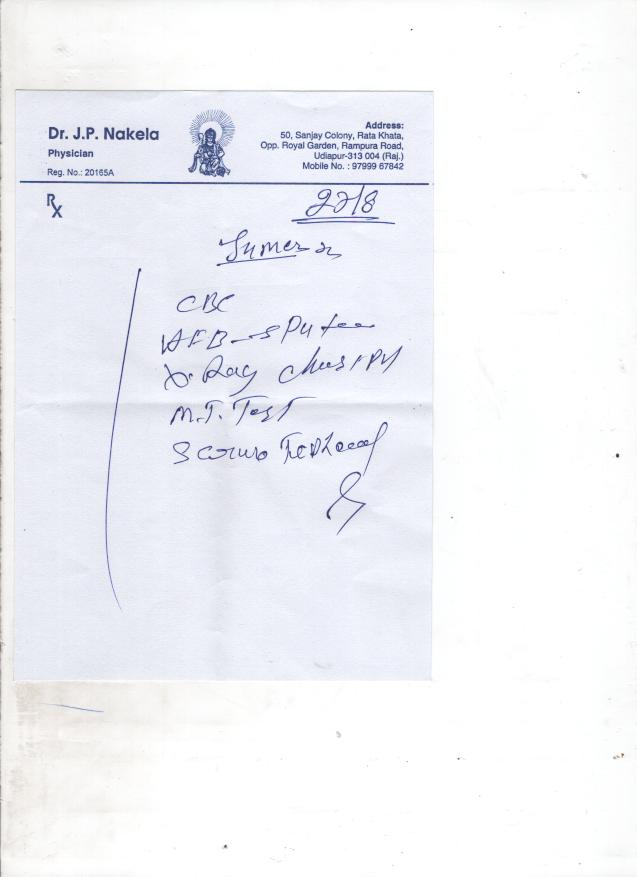 Dr. J.P. Nakela
Physician
Reg. No.: 20165A
Address:
50, Sanjay Colony, Rata Khata,
Opp. Royal Garden, Rampura Road,
Udiapur-313 004 (Raj.)
Mobile No. : 97999 67842
Rx
22/8
CBC
AFB - sputum
X-Ray chest PA
M.T. Test